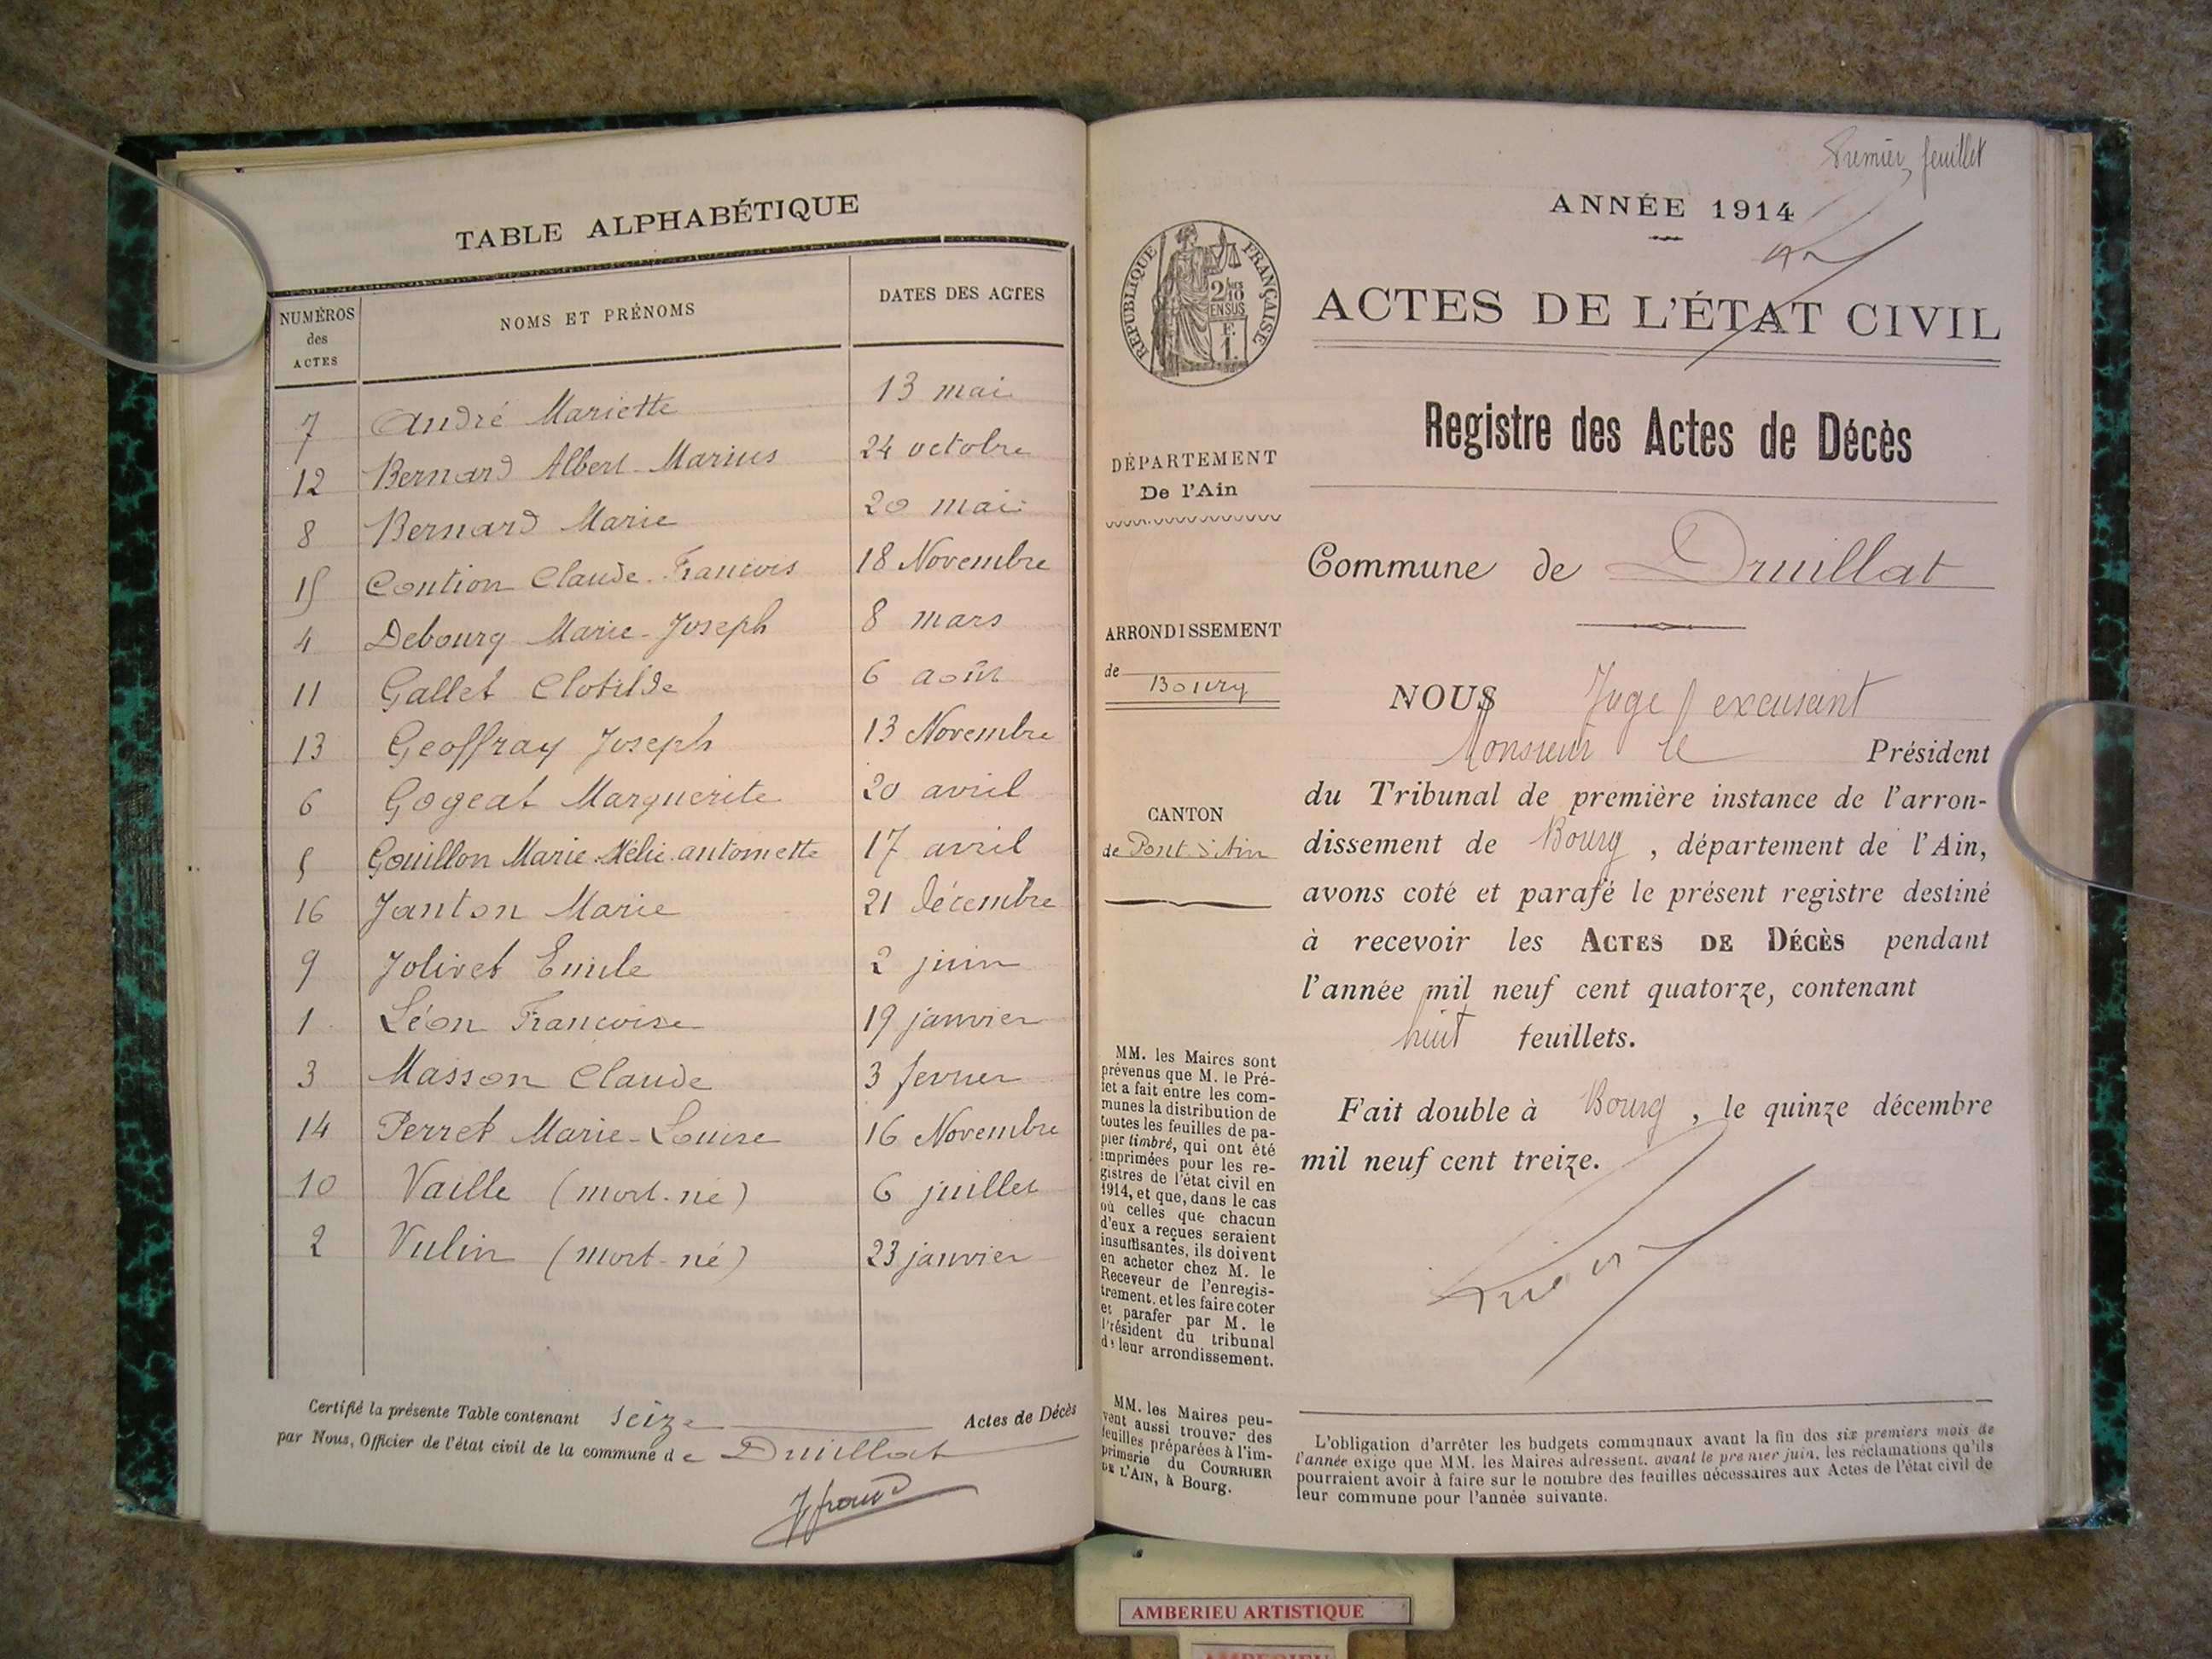 TABLE ALPHABÉTIQUE
NUMÉROS des ACTES NOMS ET PRÉNOMS DATES DES ACTES
7 André Mariette 13 mai
12 Bernard Albert-Marius 24 octobre
8 Bernard Marie 20 mai
15 Contion Claude-François 18 Novembre
4 Debourg Marie-Joseph 8 mars
11 Gallet Clotilde 6 août
13 Geoffray Joseph 13 Novembre
6 Gogeat Marguerite 20 avril
5 Gouillon Marie Mélie antoinette 17 avril
16 Janton Marie 21 décembre
9 Jolivet Emile 2 juin
1 Léon Françoise 19 janvier
3 Masson Claude 3 fevrier
14 Perret Marie-Louise 16 Novembre
10 Vaille (mort-né) 6 juillet
2 Vulin (mort-né) 23 janvier
Certifié la présente Table contenant seize Actes de Décès
par Nous, Officier de l'état civil de la commune de Druillat
Premier feuillet
ANNÉE 1914
RÉPUBLIQUE FRANÇAISE
ACTES DE L'ÉTAT CIVIL
Registre des Actes de Décès
DÉPARTEMENT
De l'Ain
Commune de Druillat
ARRONDISSEMENT
de Bourg
CANTON
de Pont d'Ain
NOUS Juge excusant
Monsieur le Président
du Tribunal de première instance de l'arron-
dissement de Bourg, département de l'Ain,
avons coté et parafé le présent registre destiné
à recevoir les ACTES DE DÉCÈS pendant
l'année mil neuf cent quatorze, contenant
huit feuillets.
Fait double à Bourg, le quinze décembre
mil neuf cent treize.
MM. les Maires sont
prévenus que M. le Pré-
fet a fait entre les com-
munes la distribution de
toutes les feuilles de pa-
pier timbré, qui ont été
imprimées pour les re-
gistres de l'état civil en
1914, et que, dans le cas
où celles que chacun
d'eux a reçues seraient
insuffisantes, ils doivent
en acheter chez M. le
Receveur de l'enregis-
trement, et les faire coter
et parafer par M. le
Président du tribunal
de leur arrondissement.
MM. les Maires peu-
vent aussi trouver des
feuilles préparées à l'im-
primerie du COURRIER
DE L'AIN, à Bourg.
L'obligation d'arrêter les budgets communaux avant la fin des six premiers mois de
l'année exige que MM. les Maires adressent, avant le premier juin, les réclamations qu'ils
pourraient avoir à faire sur le nombre des feuilles nécessaires aux Actes de l'état civil de
leur commune pour l'année suivante.
AMBERIEU ARTISTIQUE
AMBERIEU